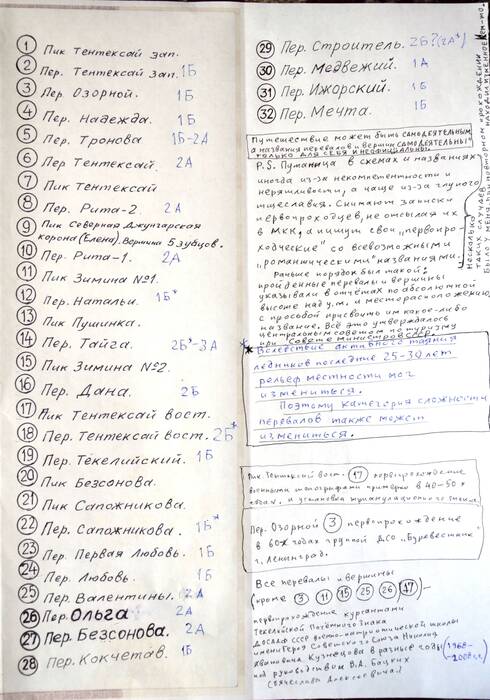 1 Пик Тентексай зап.
2 Пер. Тентексай зап. 1Б
3 Пер. Озорной. 1Б
4 Пер. Надежда. 1Б
5 Пер. Тронова 1Б-2А
6 Пер Тентексай 2А
7 Пик Тентексай
8 Пер. Рита-2 2А
9 Пик Северная Джунгарская корона (Елено). Вершина 5 зубцов.
10 Пер. Рита-1. 2А
11 Пик Зимина №1.
12 Пер. Натальи. 1Б*
13 Пик Пушинка.
14 Пер. Тайга. 2Б*-3А
15 Пик Зимина №2.
16 Пер. Дана. 2Б
17 Пик Тентексай вост.
18 Пер. Тентексай вост. 2Б*
19 Пер. Текелийский. 1Б
20 Пик Безсонова.
21 Пик Сапожникова.
22 Пер. Сапожникова. 1Б*
23 Пер. Первая Любовь. 1Б
24 Пер. Любовь. 1Б
25 Пер. Валентины. 2А
26 Пер. Ольга 2А
27 Пер. Безсонова. 2А
28 Пер. Кокчетав. 1Б
29 Пер. Строитель. 2Б? (2А*)
30 Пер. Медвежий. 1А
31 Пер. Ижорский. 1Б
32 Пер. Мечта. 1Б
Путешествие может быть самодеятельным,
а названия перевалов и вершин "самодеятельны"
только для себя и неофициальны.
P.S. Путаница в схемах и названиях
иногда из-за некомпетентности и
неряшливости, а чаще из-за глупого
тщеславия. Снимают записки
первопроходцев, не отсылая их
в МКК, а пишут свои "первопро-
ходческие" со всевозможными
"романтическими" названиями.
Раньше порядок был такой:
пройденные перевалы и вершины
указывали в отчётах по абсолютной
высоте над у.м. и месторасположению,
с просьбой присвоить им какое-либо
название. Всё это утверждалось
центральным советом по туризму
при Совете министров СССР.
Несколько таких случаев было у меня, при повторном прохождении
* Вследствие активного таяния
ледников последние 25-30 лет
рельеф местности мог
измениться.
Поэтому категория сложности
перевалов также может
измениться.
Пик Тентексай вост. 17 первопрохождение
военными топографами примерно в 40-50х
годах, и установка триангуляционного знака.
Пер. Озорной 3 первопрохождение
в 60х годах группой ДСО "Буревестник"
г. Ленинград.
Все перевалы и вершины
(кроме 3 11 15 25 26 17)-
первопрохождение курсантами
Текелийской Почётного Знака
ДОСААФ СССР военно-патриотической школы
имени Героя Советского Союза Николая
Ивановича Кузнецова в разные годы
под руководством В.А.
Вячеслава Алексеевича!